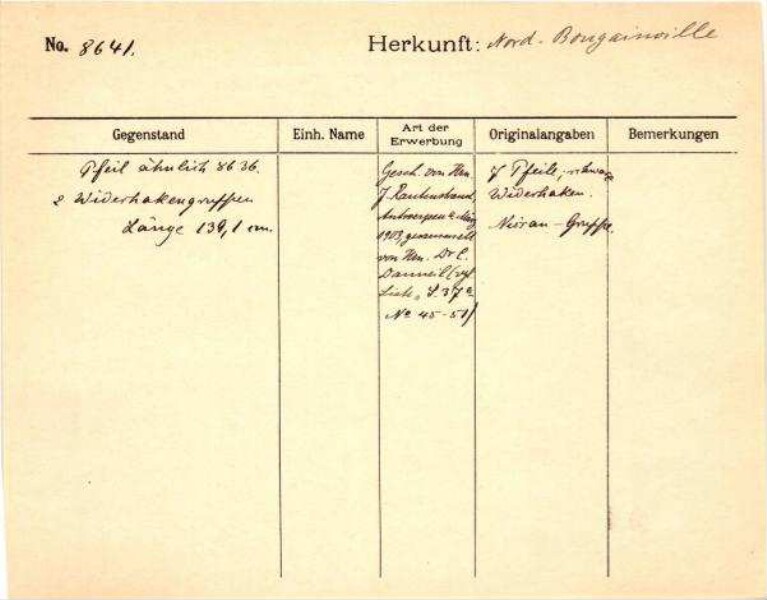 No. 8641.
Herkunft: Nord-Bougainville
Gegenstand
Einh. Name
Art der Erwerbung
Originalangaben
Bemerkungen
Pfeil ähnlich 8636.
2 Widerhakengruppen
Länge 139,1 cm.
Gesch. von Hrn.
J. Rautenstrauch,
Antwerpen März
1903, gesammelt
von Hrn. Dr. C.
Danneil (vgl.
Liste, S. 37
No 45-51)
7 Pfeile, schwarze
Widerhaken.
Gruppe.